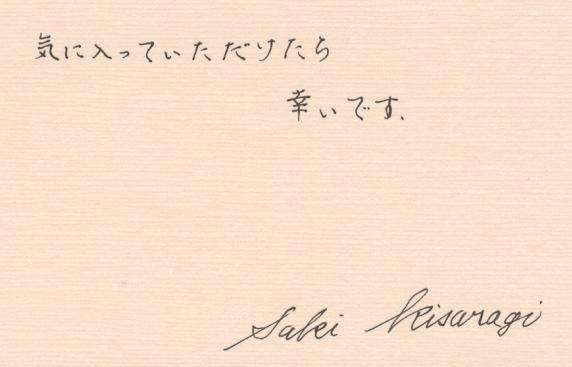 気に入っていただけたら
幸いです.
Saki Kisaragi